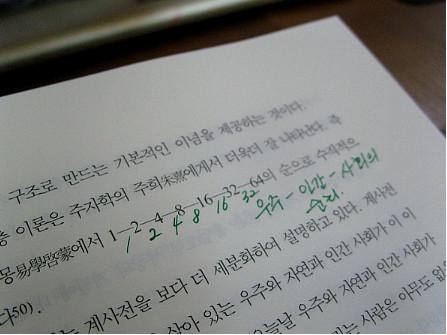 구조로 만드는 기본적인 이념을 제공하는 것이다.
층 이론은 주자학의 주희朱熹에게서 더욱더 잘 나타난다. 즉
몽易學啓蒙에서 1―2―4―8―16―32―64의 순으로 수적으
1 2 4 8 16 32 우주 - 인간 - 사회의
순리.
다50).
계사전을 보다 더 세분화하여 설명하고 있다. 계사전
살아 있는 우주와 자연과 인간 사회가 이 이
오늘날 우주와 자연과 인간 사회가
는 사람은 아무도 없을